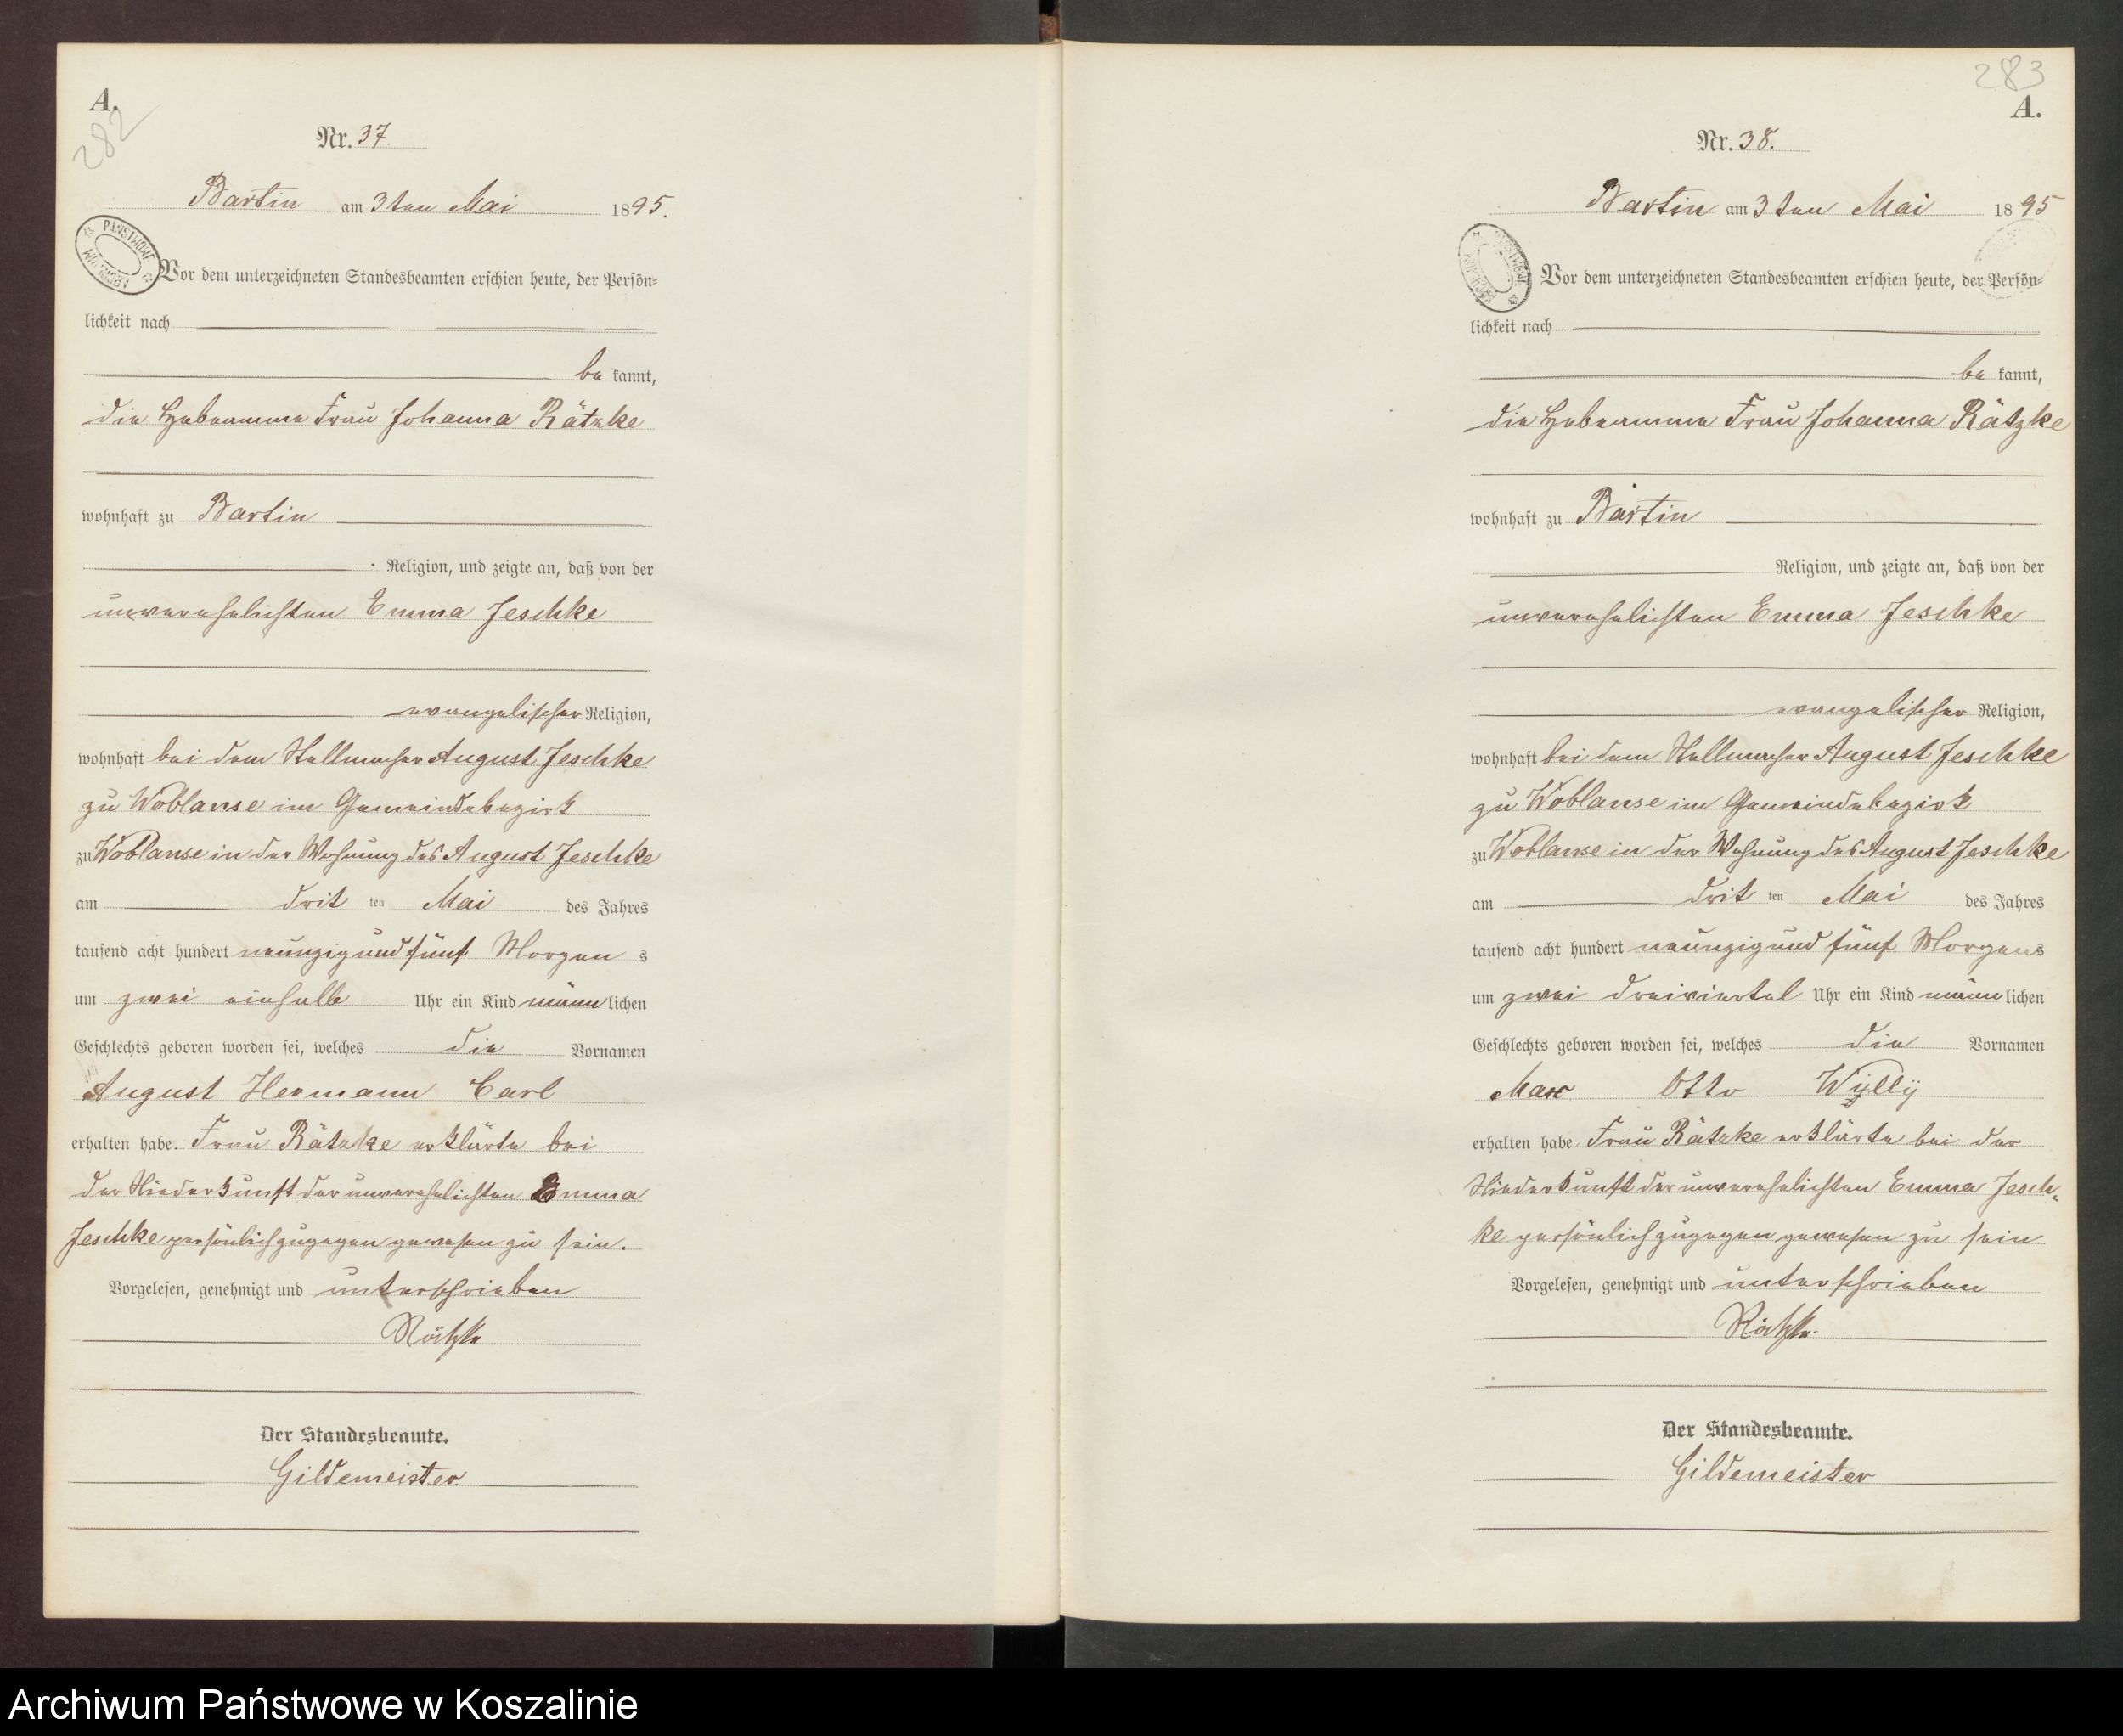 A.
282
Nr. 37.
Bartin am 3ten Mai 1895.
Vor dem unterzeichneten Standesbeamten erschien heute, der Persön-
lichkeit nach
be kannt,
die Hebeamme Frau Johanna Rätzke
wohnhaft zu Bartin
Religion, und zeigte an, daß von der
unverehelichten Emma Jeschke
evangelischer Religion,
wohnhaft bei dem Stellmacher August Jeschke
zu Woblanse im Gemeindebezirk
zu Woblanse in der Wohnung des August Jeschke
am drit ten Mai des Jahres
tausend acht hundert neunzig und fünf Morgen s
um zwei einhalb Uhr ein Kind männ lichen
Geschlechts geboren worden sei, welches die Vornamen
August Hermann Carl
erhalten habe. Frau Rätzke erklärte bei
der Niederkunft der unverehelichten Emma
Jeschke persönlich zugegen gewesen zu sein.
Vorgelesen, genehmigt und unterschrieben
Rätzke
Der Standesbeamte.
Gildemeister.
PAŃSTWOWE ARCHIWUM
283
A.
Nr. 38.
Bartin am 3ten Mai 1895
Vor dem unterzeichneten Standesbeamten erschien heute, der Persön-
lichkeit nach
be kannt,
die Hebeamme Frau Johanna Rätzke
wohnhaft zu Bartin
Religion, und zeigte an, daß von der
unverehelichten Emma Jeschke
evangelischer Religion,
wohnhaft bei dem Stellmacher August Jeschke
zu Woblanse im Gemeindebezirk
zu Woblanse in der Wohnung des August Jeschke
am drit ten Mai des Jahres
tausend acht hundert neunzig und fünf Morgens
um zwei dreiviertel Uhr ein Kind männ lichen
Geschlechts geboren worden sei, welches die Vornamen
Max Otto Wylly
erhalten habe. Frau Rätzke erklärte bei der
Niederkunft der unverehelichten Emma Jesch-
ke persönlich zugegen gewesen zu sein
Vorgelesen, genehmigt und unterschrieben
Rätzke.
Der Standesbeamte.
Gildemeister
Archiwum Państwowe w Koszalinie